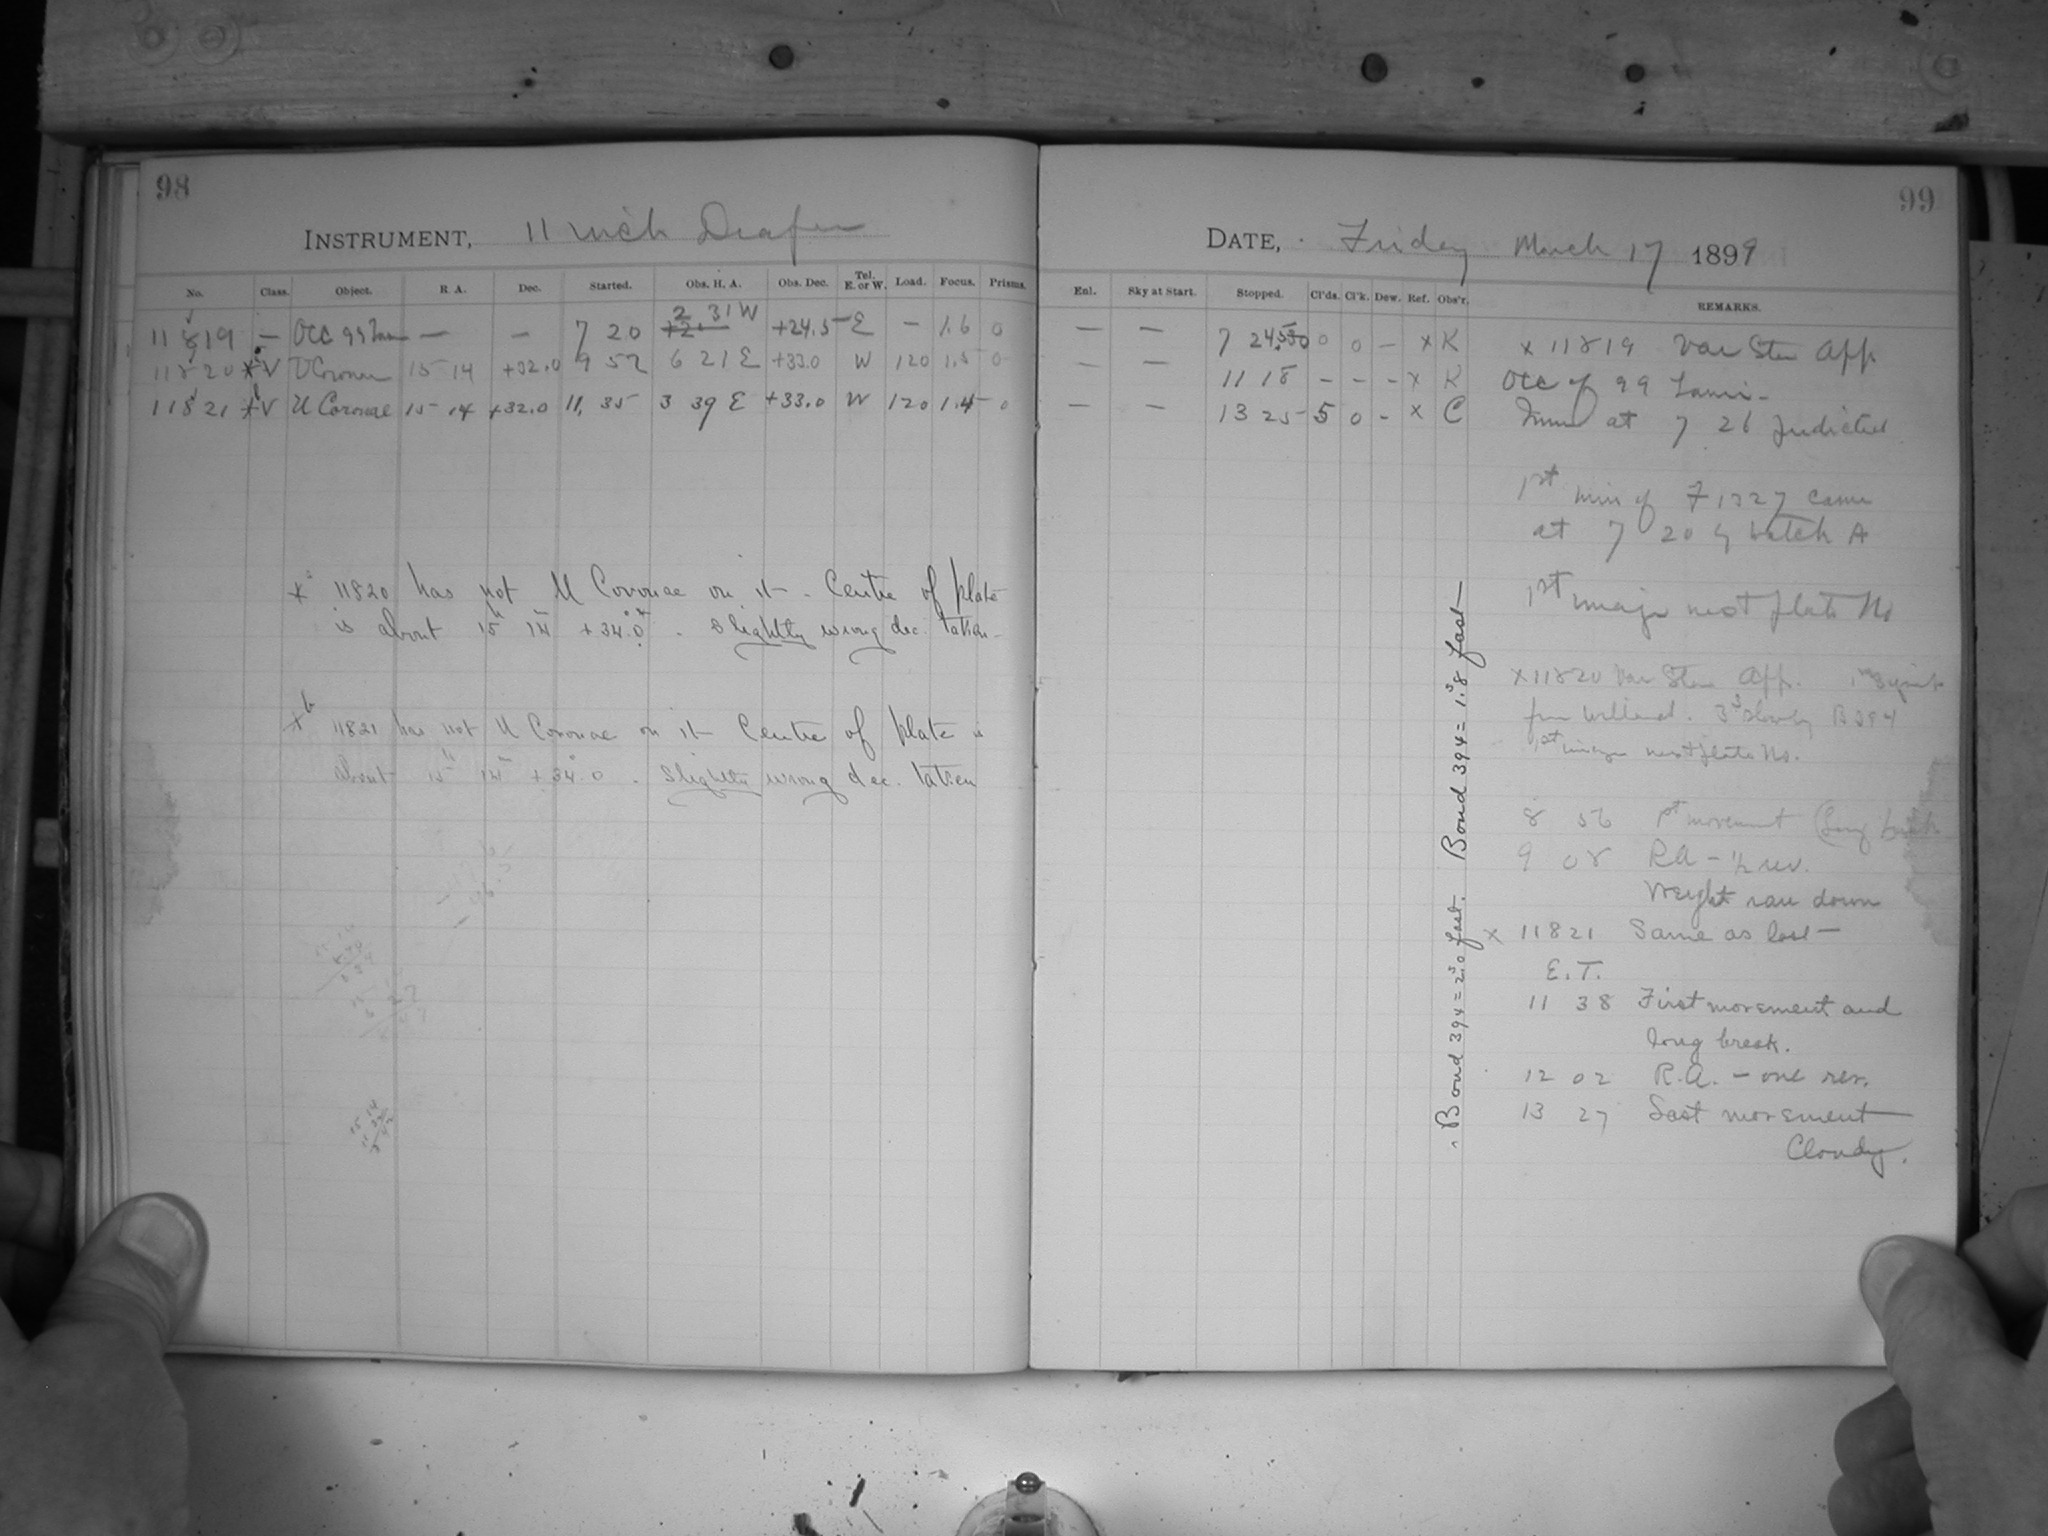 98
INSTRUMENT, 11 inch Draper
No. Class. Object. R A. Dec. Started. Obs. H. A. Obs. Dec. Tel. E. or W. Load. Focus. Prisms.
2 31 W
11819 — Occ 99 — — 7 20 +24.5 E — 1.6 0
11820 * V U Coronae 15 14 +32.0 9 52 6 21 E +33.0 W 120 1.5 0
11821 * V U Coronae 15 14 +32.0 11, 35 3 39 E +33.0 W 120 1.4 0
* 11820 has not U Coronae on it - Centre of plate
is about 15h 14m +34.0 . slightly wrong dec. taken -
*b 11821 has not U Coronae on it Centre of plate is
about 15h 14m +34°.0 . slightly wrong dec. taken
99
DATE, Friday March 17 1899
Enl. Sky at Start. Stopped. Cl'ds. Cl'k. Dew. Ref. Obs'r. REMARKS.
— — 7 24 0 0 – x K x 11819 Var Star App.
— — 11 18 – – – x K Occ of 99
— — 13 25 5 0 – x C at 7 26 predicted
1st min of F 1327 came
at 7 20 by watch A
1st image next plate No
x 11820 Var Star App.
from Willard. 3s slow by B 394
1st image next plate No.
8 56 1st movement (Long break
9 08 RA – ½ rev.
Weight ran down
x 11821 Same as last —
E. T.
11 38 First movement and
long break.
12 02 R.A. – one rev.
13 27 Last movement
Cloudy.
Bond 394 = 2s.0 fast. Bond 394 = 1s.8 fast —